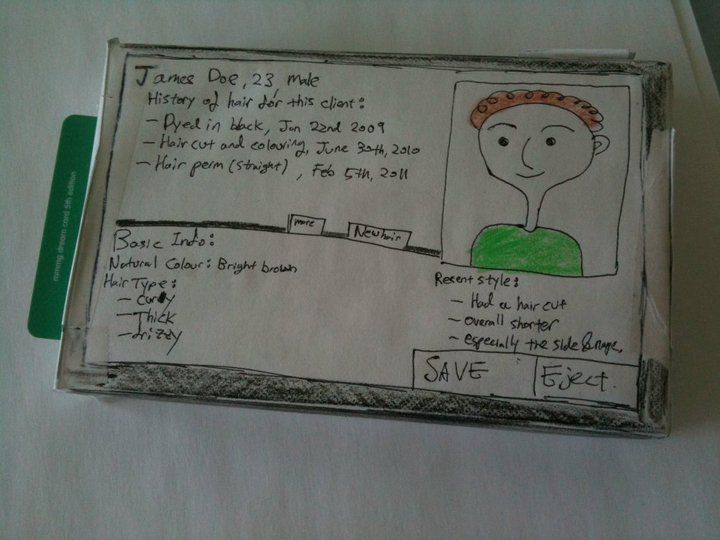 James Doe, 23, male
History of hair for this client:
- Dyed in black, Jan 22nd 2009
- Hair cut and colouring, June 30th, 2010
- Hair perm (straight), Feb 5th, 2011
more
New hair
Basic Info:
Natural Colour: Bright brown
Hair Type:
- Curly
- Thick
- frizzy
Resent style:
- Had a hair cut
- overall shorter
- especially the side &
SAVE
Eject.
dream card 5th edition